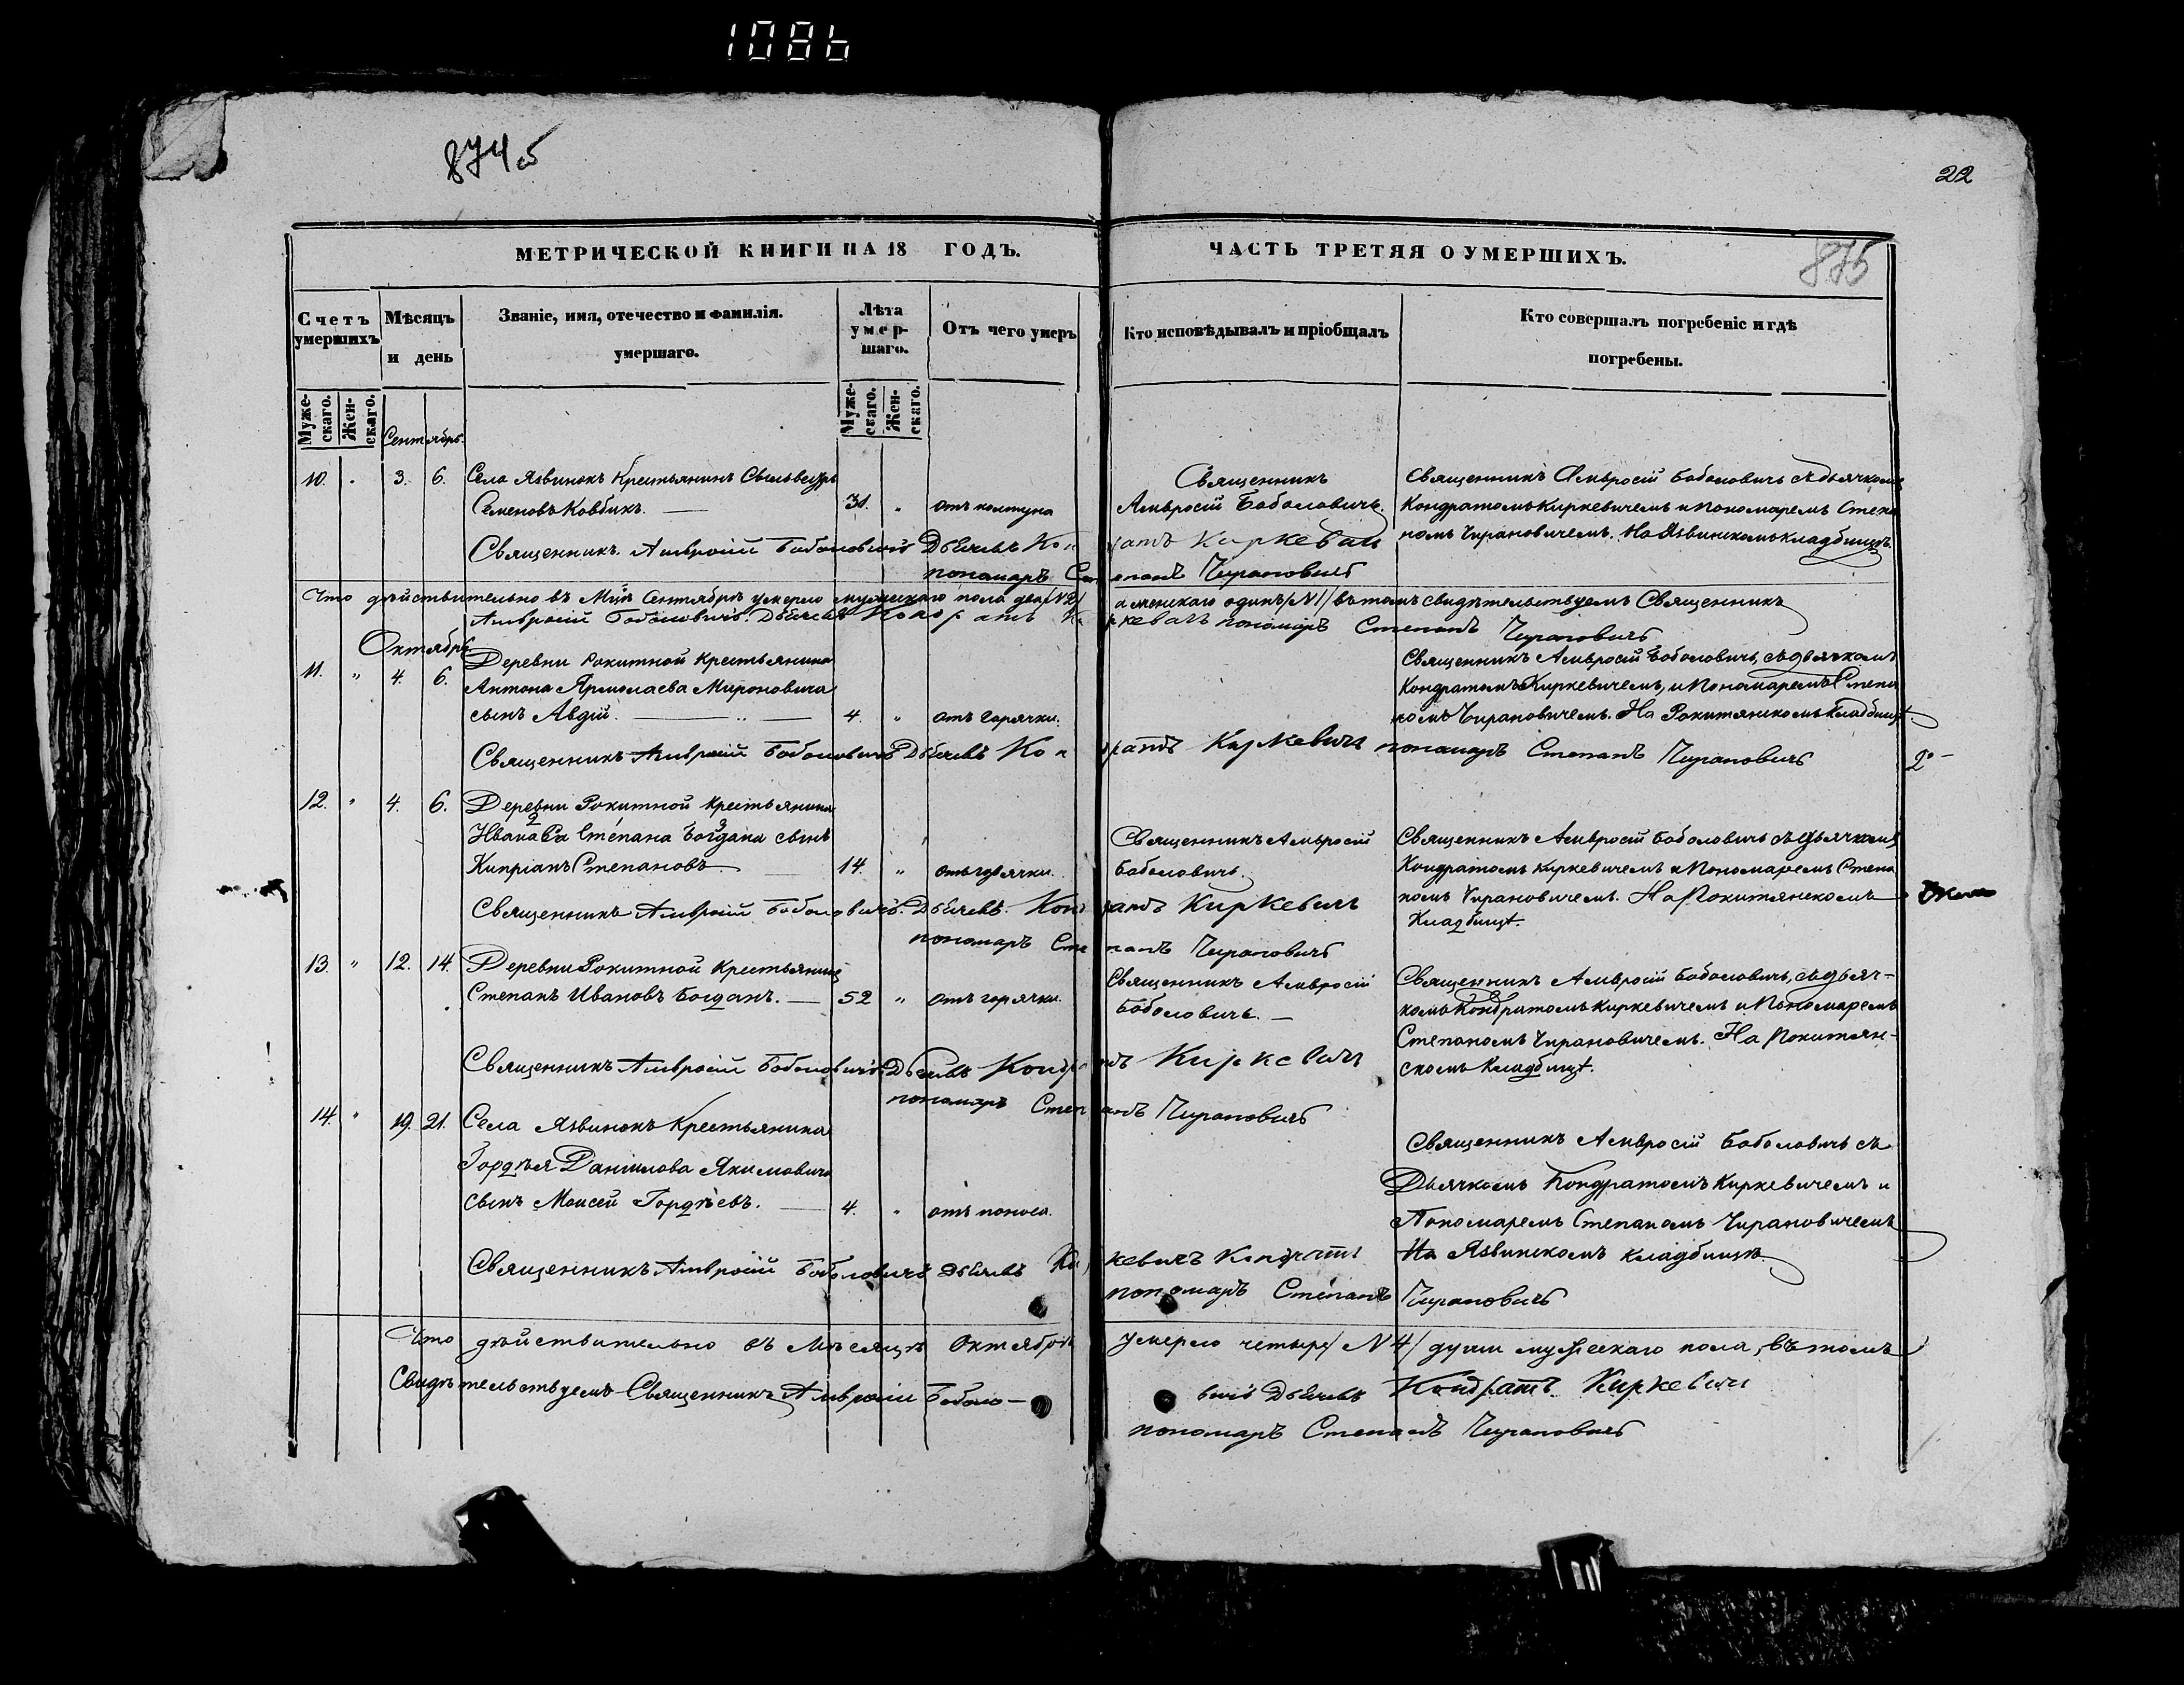 1086
874об
22
МЕТРИЧЕСКОЙ КНИГИ НА 18 ГОДЪ.
ЧАСТЬ ТРЕТЯЯ О УМЕРШИХЪ.
875
Счетъ умершихъ
Мѣсяцъ и день
Званіе, имя, отечество и фамилія. умершаго.
Лѣта умер-шаго.
Отъ чего умеръ
Кто исповѣдывалъ и пріобщалъ
Кто совершалъ погребеніе и гдѣ погребены.
Муже-скаго.
Жен-скаго.
Муже-скаго.
Жен-скаго.
Сентябрь.
10. " 3. 6. Села Язвинокъ Крестьянинъ
Семеновъ Ковбикъ. — 31. " отъ колтуна
Священникъ
Амвросій Боболовичь.
Священникъ Амвросій Боболовичь съ дьячкомъ
Кондратомъ Киркевичемъ и Пономаремъ Степа
номъ Чирановичемъ. На Язвинскомъ кладбищѣ.
Священникъ Амвросій Боболовичъ Дьячекъ Кондратъ Киркевичъ
пономаръ Степанъ Чирановичъ
Что дѣйствительно въ Мцѣ Сентябрѣ умерло мужескаго пола два /№2/ а женскаго одинъ /№1/ въ томъ свидѣтельствуемъ Священникъ
Амвросій Боболовичъ. Дьячекъ Кондратъ Киркевичъ пономаръ Степанъ Чирановичъ
Октябрь
11. " 4. 6. Деревни Рокитной Крестьянина
Антона Ярмолаева Мироновича
сынъ Авдій. — " — 4. " отъ горячки.
Священникъ Амвросій Боболовичь, съ дьячкомъ
Кондратомъ Киркевичемъ, и Пономаремъ Степа
номъ Чирановичемъ. На Рокитянскомъ Кладбищѣ.
Священникъ Амвросій Боболовичъ Дьячекъ Кондратъ Киркевичъ пономаръ Степанъ Чирановичъ
12. " 4. 6. Деревни Рокитной Крестьянина
2 3
Степана Богдана сынъ
Кипріанъ Степановъ. 14. " отъ горячки.
Священникъ Амвросій
Боболовичь.
Священникъ Амвросій Боболовичь съ Дьячкомъ
Кондратомъ Киркевичемъ и Пономаремъ Степа
номъ Чирановичемъ. На Рокитянскомъ
Кладбищѣ.
Священникъ Амвросій Боболовичъ. Дьячекъ. Кондратъ Киркевичъ
пономаръ Степанъ Чирановичъ
13. " 12. 14. Деревни Рокитной Крестьянинъ
Степанъ Ивановъ Богданъ. — 52 " отъ горячки.
Священникъ Амвросій
Боболовичь. —
Священникъ Амвросій Боболовичь, съ дьяч-
комъ Кондратомъ Киркевичемъ и Пономаремъ
Степаномъ Чирановичемъ. На Рокитян-
скомъ Кладбищѣ.
Священникъ Амвросій Боболовичъ Дьячекъ Кондратъ Киркевичъ
пономаръ Степанъ Чирановичъ
14. " 19. 21. Села Язвинокъ Крестьянина
Гордѣя Данилова Якимовича
сынъ Моисей Гордѣевъ. — 4. " отъ поноса.
Священникъ Амвросій Боболовичь съ
Дьячкомъ Кондратомъ Киркевичемъ и
Пономаремъ Степаномъ Чирановичемъ
На Язвинскомъ кладбищѣ.
Священникъ Амвросій Боболовичъ Дьячекъ Киркевичъ Кондратъ
пономаръ Степанъ Чирановичъ
Что дѣйствительно въ Мѣсяцѣ Октябрѣ умерло четыре /№4/ души мужескаго пола, въ томъ
Свидѣтельствуемъ Священникъ Амвросій Боболо— вичъ Дьячекъ Кондратъ Киркевичъ
пономаръ Степанъ Чирановичъ